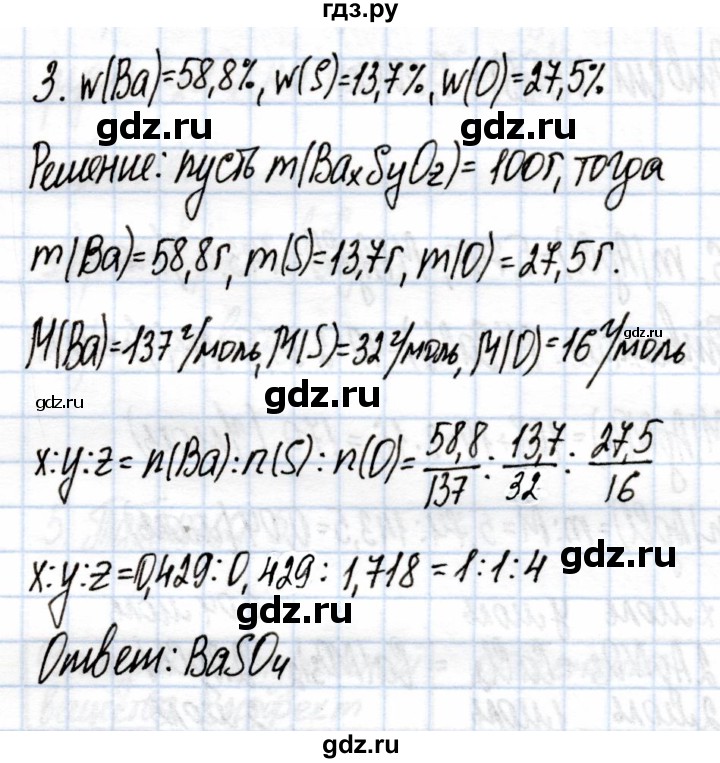 гдз.ру
3. w(Ba)=58,8%, w(S)=13,7%, w(O)=27,5%
gdz.ru
gdz.ru
Решение: пусть m(BaxSyOz)=100г, тогда
m(Ba)=58,8г, m(S)=13,7г, m(O)=27,5г.
gdz.ru
M(Ba)=137 г/моль, M(S)=32 г/моль, M(O)=16 г/моль
gdz.ru
gdz.ru
x:y:z=n(Ba):n(S):n(O)=58,8/137:13,7/32:27,5/16
gdz.ru
x:y:z=0,429:0,429:1,718=1:1:4
Ответ: BaSO4
gdz.ru
gdz.ru